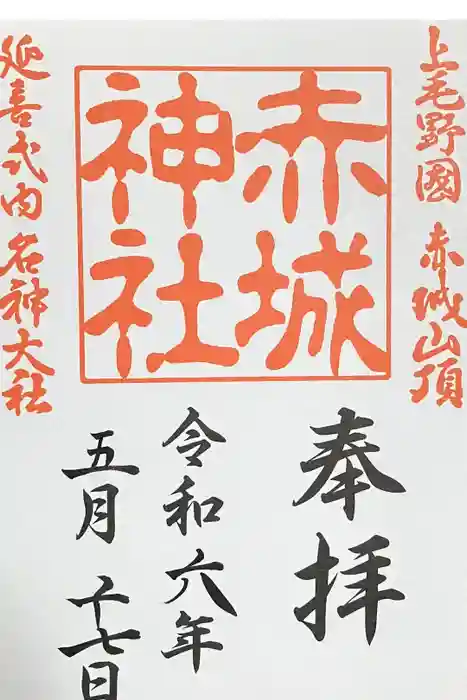 上毛野國 赤城山頂
赤城
神社
延喜式内 名神大社
奉拝
令和六年
五月 十七日